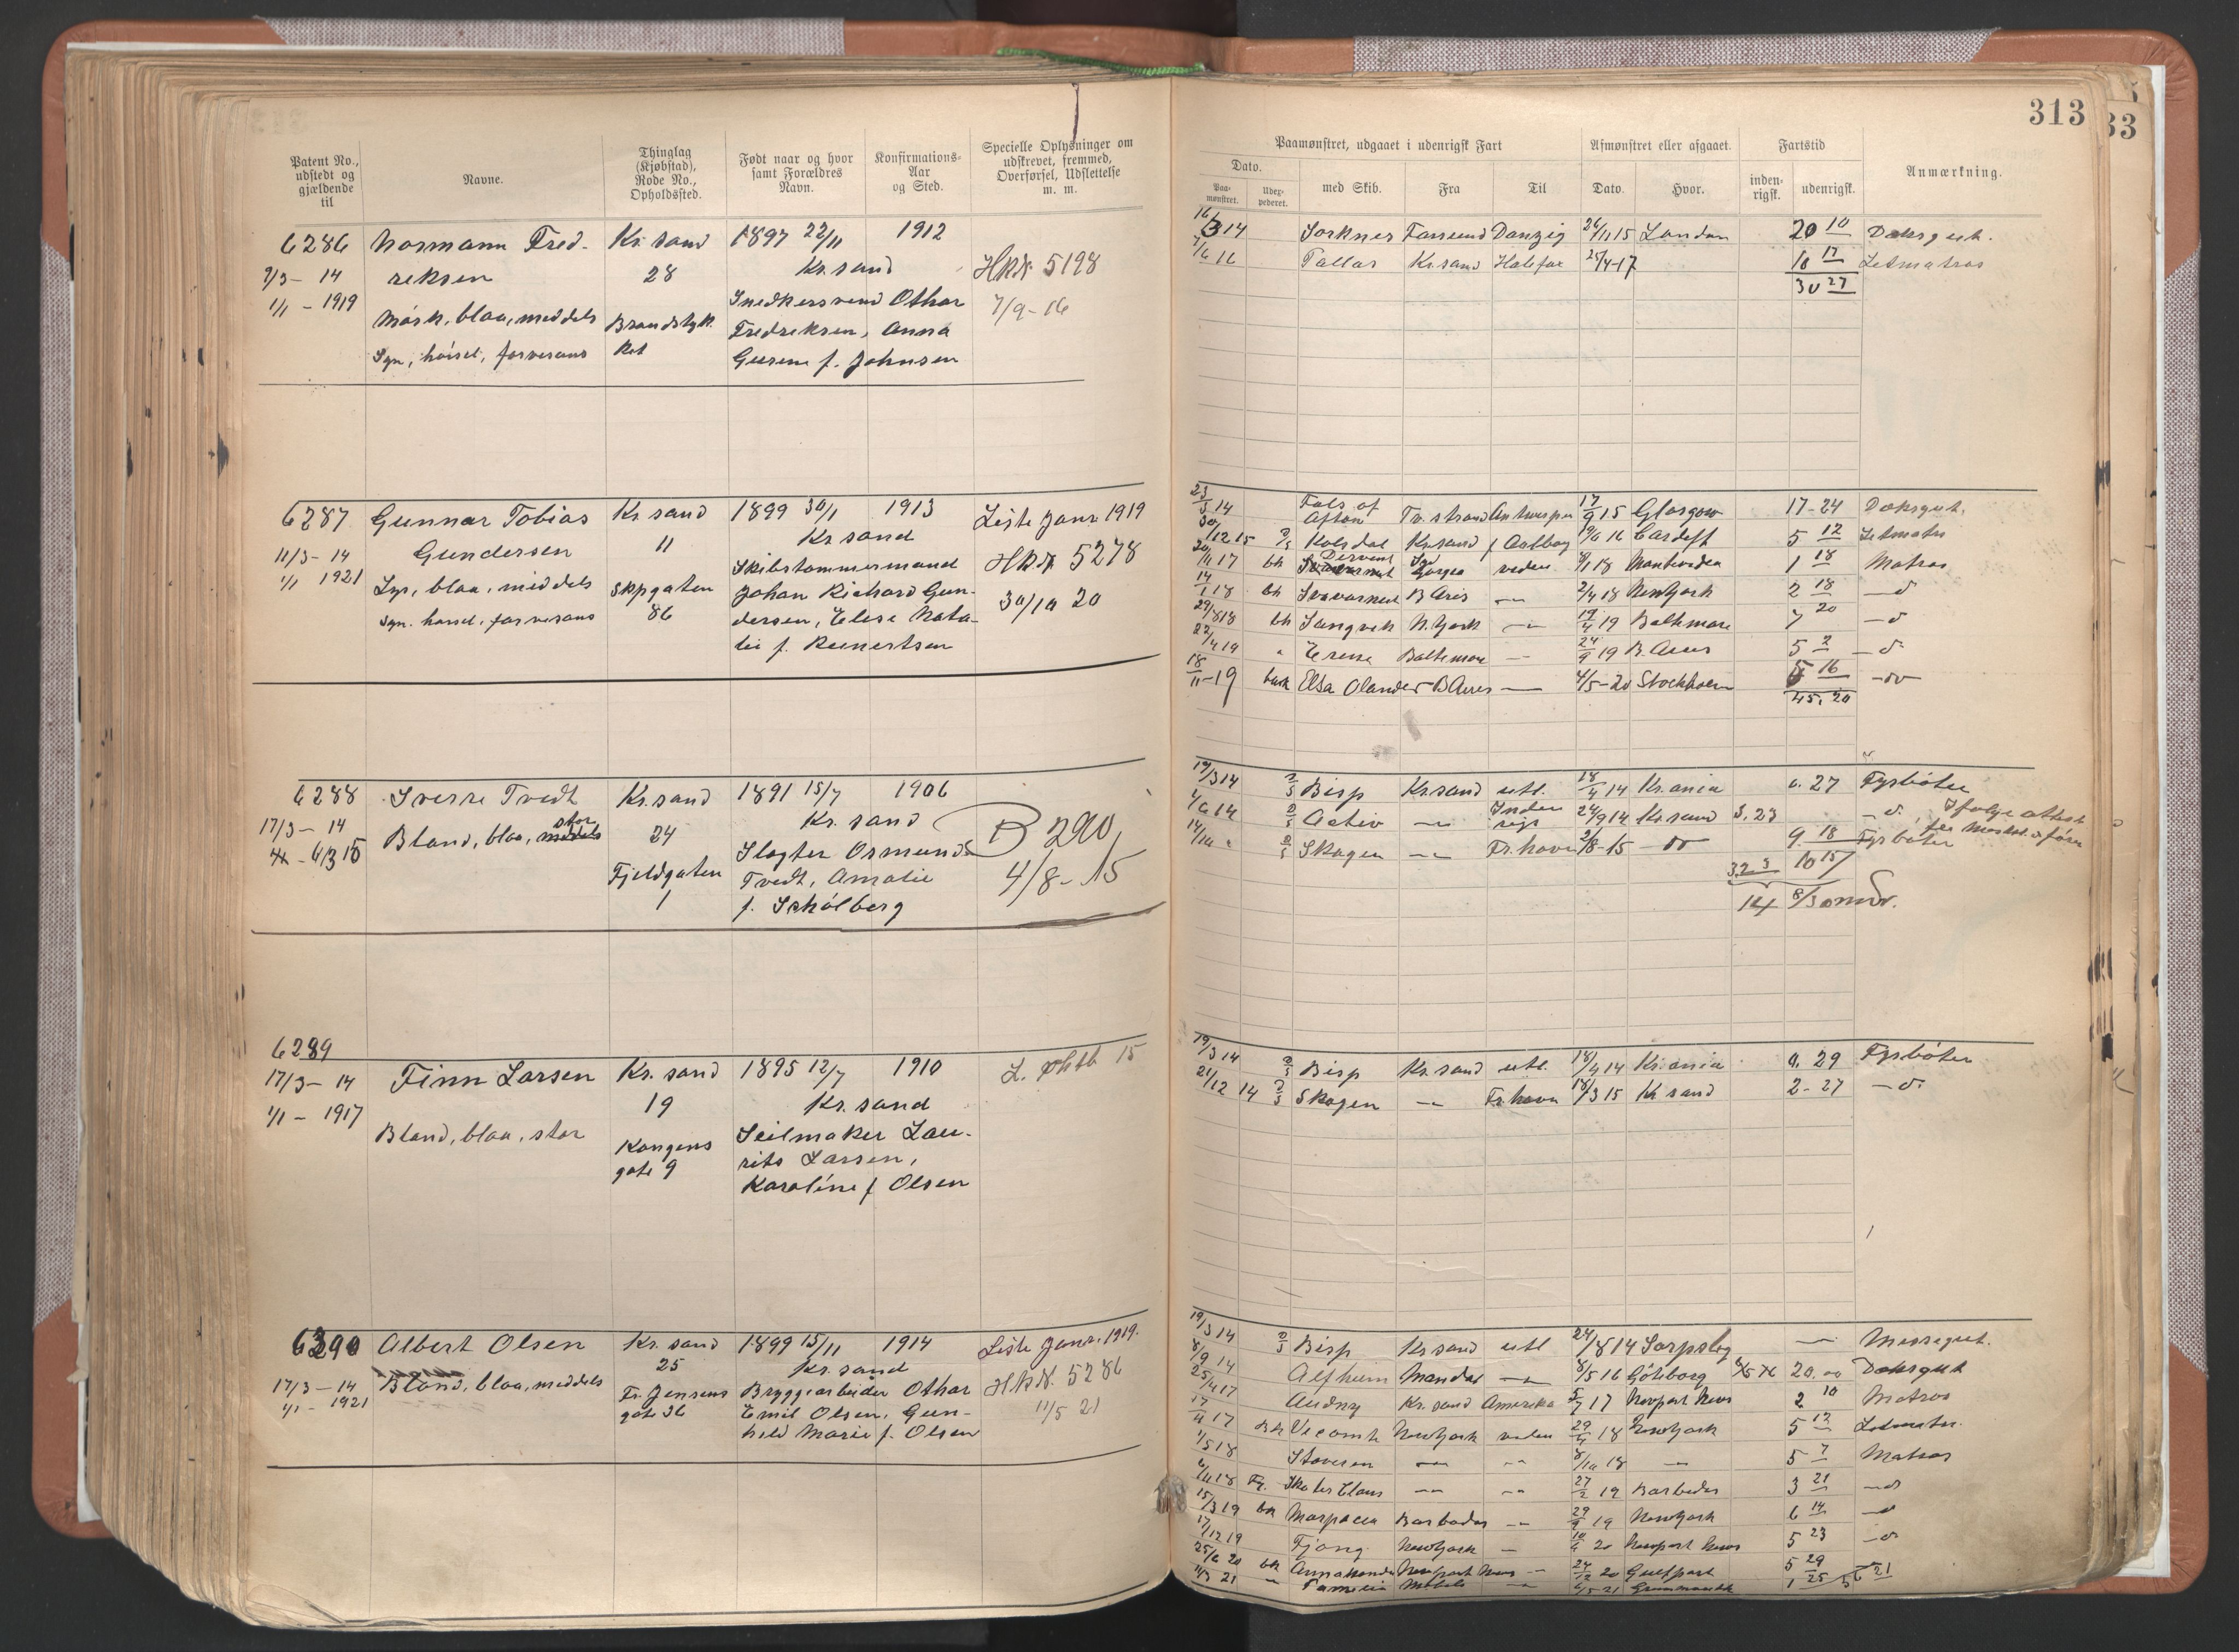 313
33
Patent No., udstedt og gjældende til
Navne.
Thinglag (Kjøbstad), Rode No., Opholdssted.
Født naar og hvor samt Forældres Navn.
Konfirmations-Aar og Sted.
Specielle Oplysninger om udskrevet, fremmed, Overførsel, Udslettelse m. m.
Paamønstret, udgaaet i udenrigsk Fart
Dato.
Paa-mønstret.
Uder-pederet.
med Skib.
Fra
Til
Afmønstret eller afgaaet.
Dato.
Hvor.
Fartstid
inden-rigsk.
udenrigsk.
Anmærkning.
6286 Normann Fred- Kr. sand 1897 22/11 1912
7/3 - 14 reksen 28 Kr. sand HRN 5198
1/1 - 1919 Snedkersvend Othar 7/9-16
Mørk, blaa, meddels Brandstyk Fredreksen, Anna
Syn, hørsel, farvesans ket f. Johnsen
16/3 14 Sorknes Farsund Danzig 26/11 15 London 20 10 Dæksgut.
Pallas Kr. sand Halifax 25/4-17 10 17 Letmatros
30 27
6287 Gunnar Tobias Kr sand 1899 30/1 1913 Liste Janr 1919
11/3 - 14 Gundersen 11 Kr sand HRN 5278
1/1 1921 Lys, blaa, middels Skpgaten Skibstømmermand 30/10 20
Syn. hørsel, farvesans 86 Johan Richard Gun-
dersen, Elise Nata-
lie f. Reinertsen
23/3 14 Fals of Afton Tv. strand Antwerpen 17/9 15 Glasgow 17-24 Dæksgut.
30/12 15 Kolsdal Kr.sand f Aalborg 19/6 16 Cardiff 5 12 Letmatr
20/11 17 bk Dervent vuden 8/1 18 Montevideo 1 18 Matros
14/1 18 bk B Aires 2/4 18 New York 2 18 - d
29/8 18 bk Songvek N. York 19/4 19 Baltimore 7 20 - d
22/4 19 Baltimore 24/9 19 B. Aires 5 2 - d
18/11-19 bark Elsa Olander B Aires 4/5-20 Stockholm 5 16
45.20
6288 Sverre Tvedt Kr. sand 1891 15/7 1906
17/3 - 14 stor 24 Kr. sand B 290
Blond, blaa, middels Slagter Osmund 4/8-15
Fjeldgaten Tvedt, Amalie
1 f. Schølberg
19/3 14 Bisp Kr.sand utl. 18/4 14 Kr.ania 0. 27 Fyrbøter
4/6 14 Activ Inden rigs 24/9 14 Kr.sand 3. 23 - d. Ifølge attest
Skagen Fr.havn 2/8-15 9 18 Fyrbøter
10 15
14
6289
17/3 - 14 Finn Larsen Kr. sand 1895 12/7 1910
1/1 - 1917 19 Kr. sand
Blond, blaa, stor Kongens Seilmaker Lau-
gate 9 rits Larsen,
Karoline f Olsen
19/3 14 Bisp Kr. sand utl. 18/4 14 Kr.ania 0. 29 Fyrbøter
21/12 14 Skagen Fr.havn 18/3 15 Kr sand 2-27 - d.
6290 Albert Olsen Kr. sand 1899 15/11 1914 Liste Janr. 1919.
25 Kr. sand HRN. 5286
17/3 - 14 Blond, blaa, meddels Fr. Jensens Bryggearbeider Othar 11/5 21
1/1 - 1921 gate 36 Emil Olsen, Gun-
hild Marie f. Olsen
19/3 14 Bisp Kr sand utl 24/8 14 Sarpsborg Messegut.
8/9 14 Alfheim Mandal 8/5 16 Göteborg 20.00 Dæksgut
25/4 17 Audny Kr. sand Amerika 5/7 17 Newport News 2 10 Matros
17/11 17 Bk New York vuden 29/4 18 New York 5 12 Letmatr.
1/5 18 8/10 18 5 7 Matros
27/2 19 Barbados 3 21 - d
15/3 19 bk Barbados 29/9 19 New York 6 14 - d
17/12 19 Fjong New York 10/6 20 Newport News 5 23 - d
25/6 20 bk Newport News 24/12 20 Gulfport 5 29
1 25